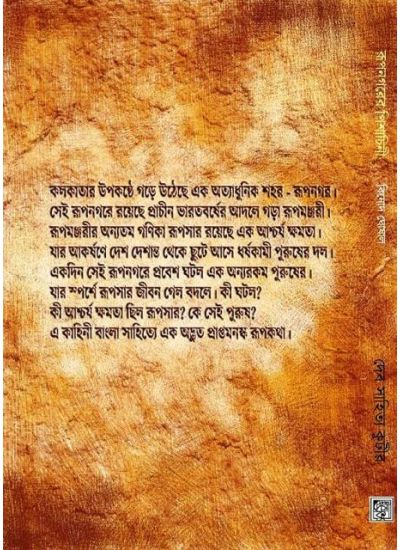 কলকাতার উপকণ্ঠে গড়ে উঠেছে এক অত্যাধুনিক শহর - রূপনগর।
সেই রূপনগরে রয়েছে প্রাচীন ভারতবর্ষের আদলে গড়া রূপমঞ্জরী।
রূপমঞ্জরীর অন্যতম গণিকা রূপসার রয়েছে এক আশ্চর্য ক্ষমতা।
যার আকর্ষণে দেশ দেশান্ত থেকে ছুটে আসে ধর্ষকামী পুরুষের দল।
একদিন সেই রূপনগরে প্রবেশ ঘটল এক অন্যরকম পুরুষের।
যার স্পর্শে রূপসার জীবন গেল বদলে। কী ঘটল?
কী আশ্চর্য ক্ষমতা ছিল রূপসার? কে সেই পুরুষ?
এ কাহিনী বাংলা সাহিত্যে এক অদ্ভুত প্রাপ্তমনস্ক রূপকথা।
রূপনগরের পিশাচিনী
বিনোদ ঘোষাল
দেব সাহিত্য কুটীর